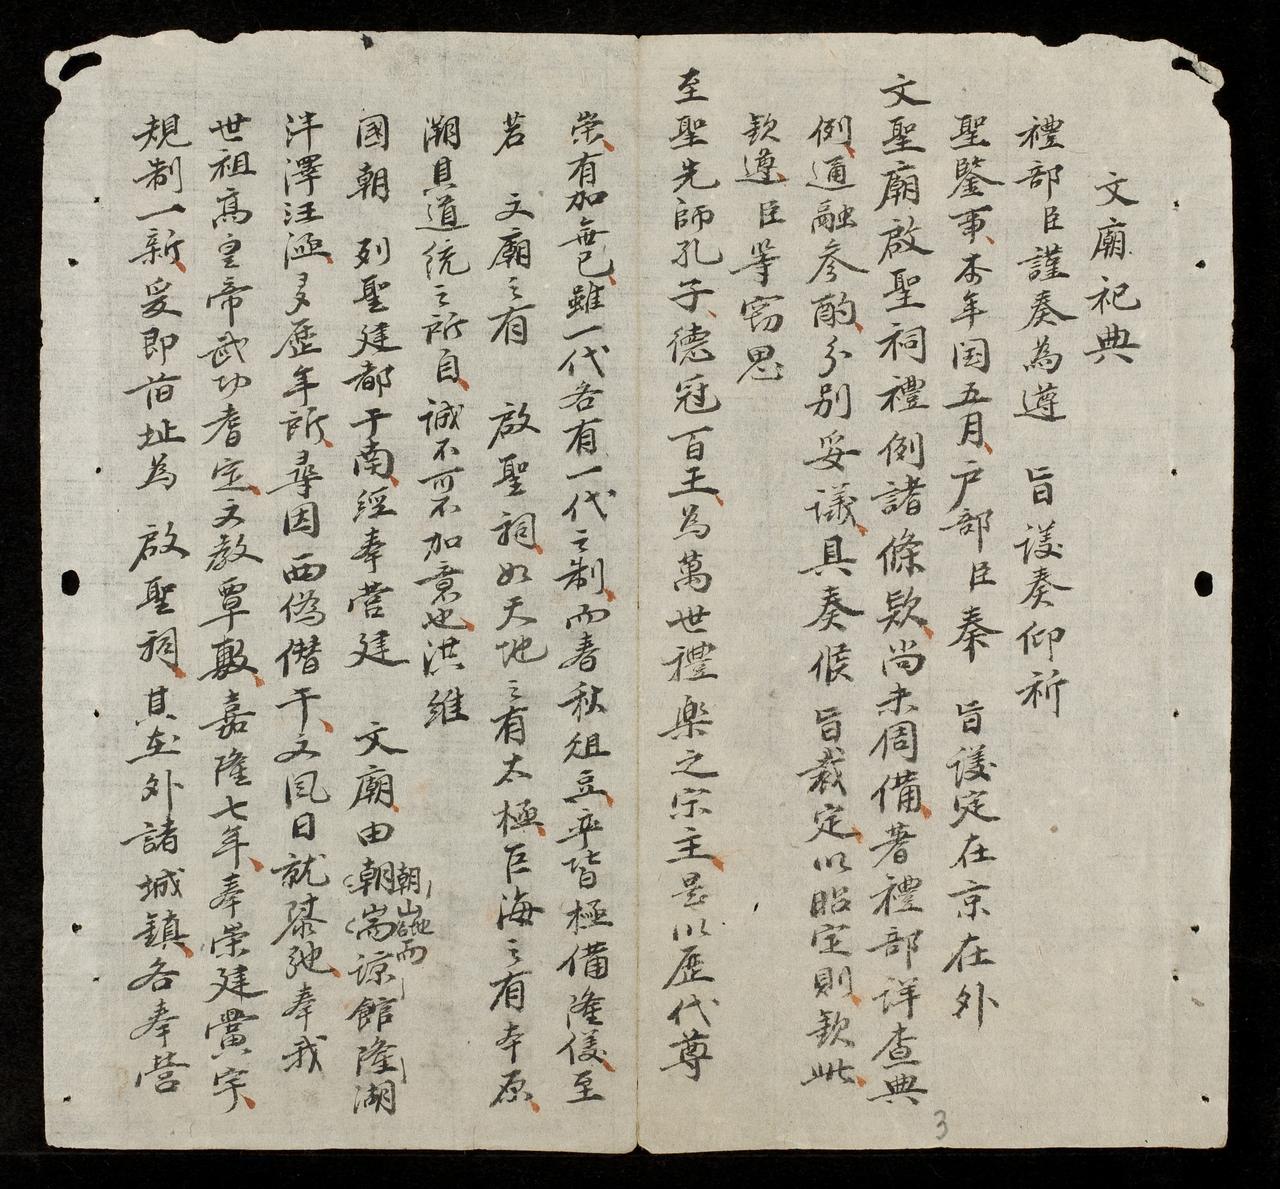 文廟祀典
禮部臣謹奏為遵　旨議奏仰祈
聖鑒事、本年囯五月、户部臣奏　旨議定在京在外
文聖廟啟聖祠禮例諸條欵、尚未周備、著禮部詳查典
例、通融參酌、分别妥議、具奏候　旨裁定、以昭定則、欽此、
欽遵、臣等窃思
至聖先師孔子、德冠百王、為萬世禮楽之宗主、是以歷代尊
崇、有加無已、雖一代各有一代之制、而春秋俎豆、率皆極備隆儀、至
若　文廟之有　啟聖祠、如天地之有太極、巨海之有本原、
溯其道統之所自、誠不可不加意也、洪維
國朝　列聖建都于南、經奉營建　文廟、由朝耑諒館隆湖
朝山𡶀而
洋澤汪涵、多歷年所、尋因西偽僭干、文風日就隳弛、奉我
世祖高皇帝武功耆定、文教覃敷、嘉隆七年、奉崇建黌宇、
規制一新、爰即旧址為　啟聖祠、其在外諸城鎮、各奉營
3